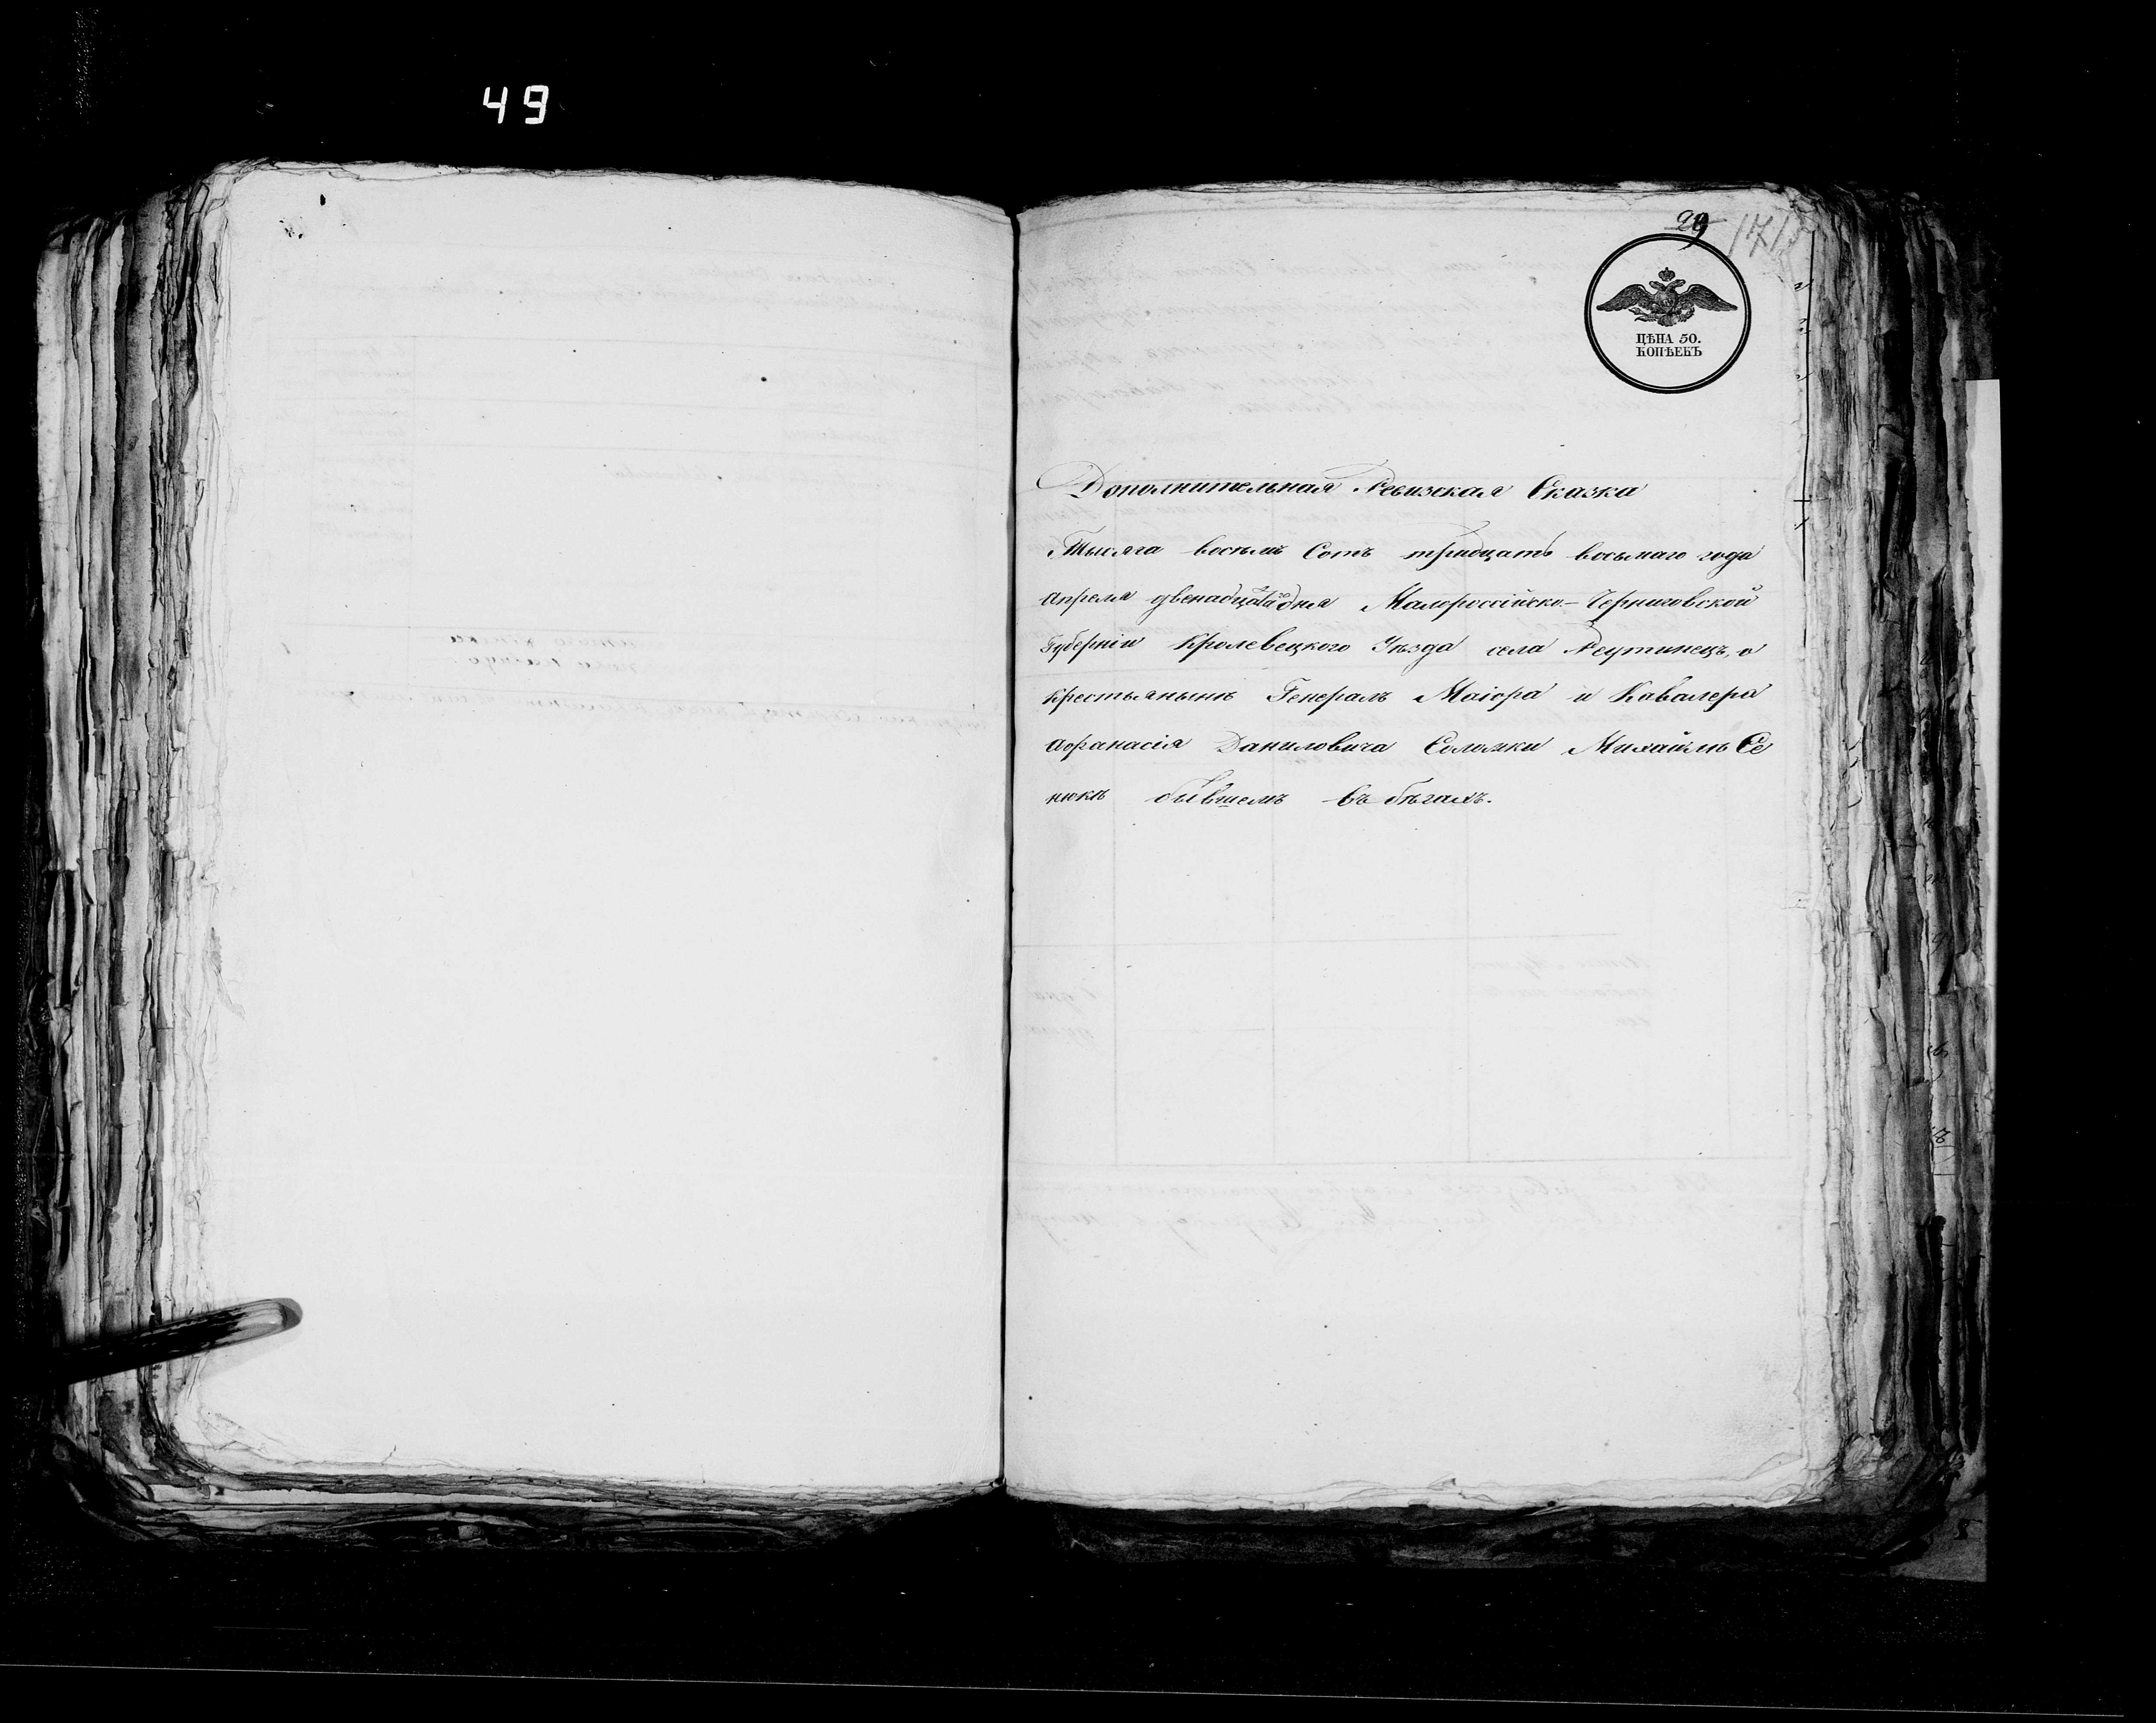 49
29
171
ЦѢНА 50.
КОПѢЕКЪ
Дополнительная Ревизская Сказка
Тысяча восемь Сотъ тридцать восьмаго года
Апреля двенадцатаго дня Малороссійско-Черниговской
Губерніи Кролевецкого Уезда села Реутинецъ, о
крестьянынѣ Генералъ Маіора и Кавалера
Афанасія Даниловича Соломки Михайлѣ Се
нюкѣ бывшемъ въ бѣгахъ.